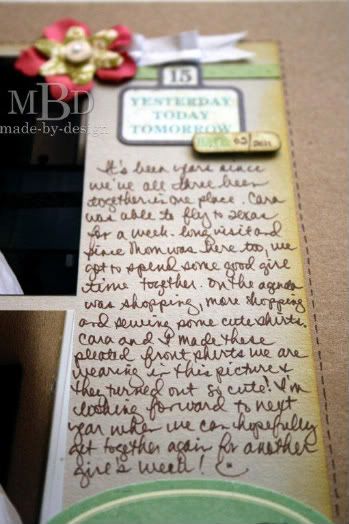 15
YESTERDAY
TODAY
TOMORROW
2011
MBD
made-by-design
It's been years since
we've all three been
together in one place. Cara
was able to fly to Texas
for a week-long visit and
since Mom was here too, we
got to spend some good girl
time together. On the agenda
was shopping, more shopping
and sewing some cute shirts.
Cara and I made these
pleated front shirts we are
wearing in this picture &
they turned out so cute! I'm
looking forward to next
year when we can hopefully
get together again for another
girl's week!